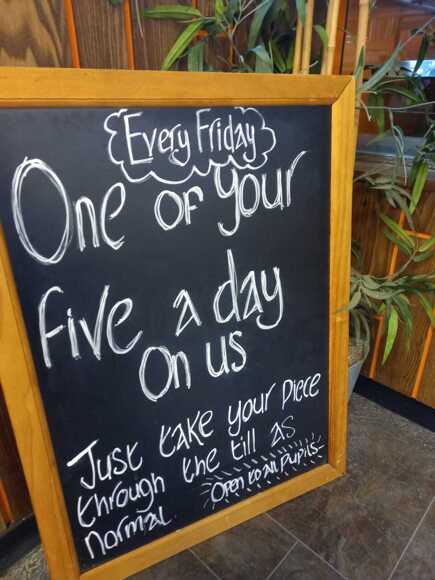 Every Friday
One of your
five a day
On us
Just take your piece
through the till as
normal
Open to all Pupils